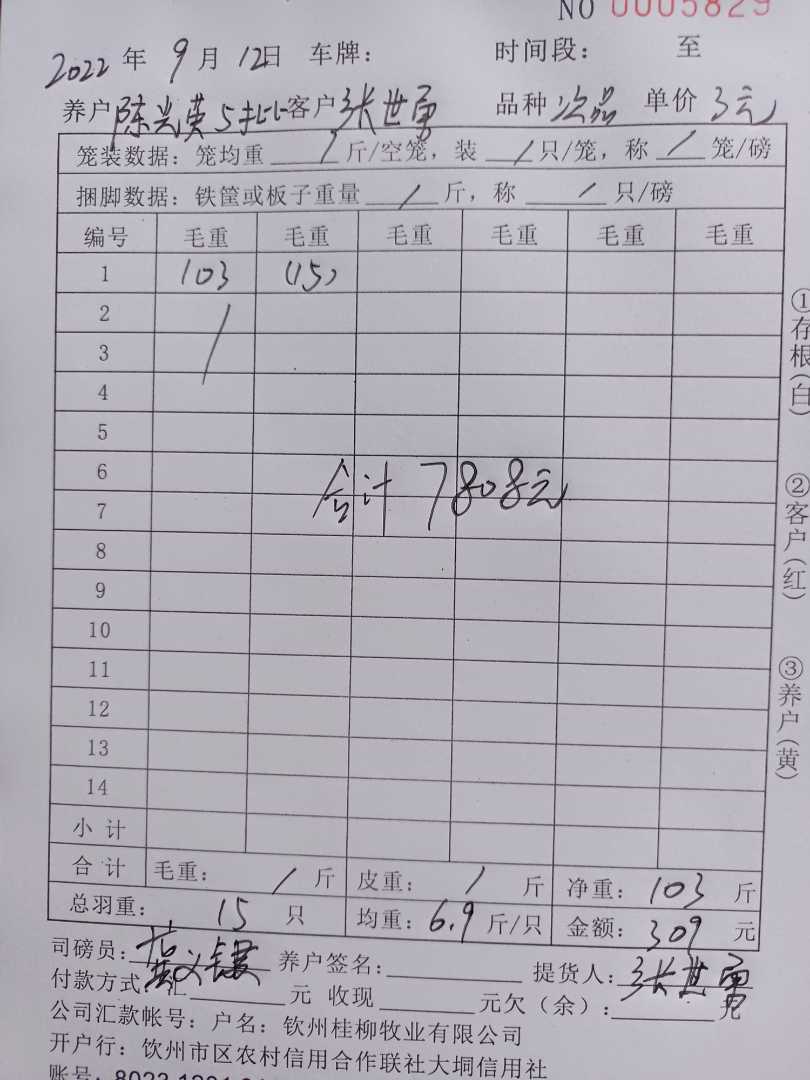 NO 0005829
2022年 9月 12日 车牌： 时间段： 至
养户 陈光英5批 客户 张世勇 品种 次品 单价 3元
笼装数据：笼均重 / 斤/空笼，装 / 只/笼，称 / 笼/磅
捆脚数据：铁筐或板子重量 / 斤，称 / 只/磅
编号 毛重 毛重 毛重 毛重 毛重 毛重
1 103 (15)
2
3
4
5
6
合计 7808元
7
8
9
10
11
12
13
14
小计
合计 毛重： / 斤 皮重： / 斤 净重：103 斤
总羽重： 15 只 均重：6.9 斤/只 金额：309 元
司磅员： 养户签名： 提货人：张世勇
付款方式 汇 元 收现 元欠（余）： 元
公司汇款帐号：户名：钦州桂柳牧业有限公司
开户行：钦州市区农村信用合作联社大垌信用社
账号：8023
①存根(白)
②客户(红)
③养户(黄)